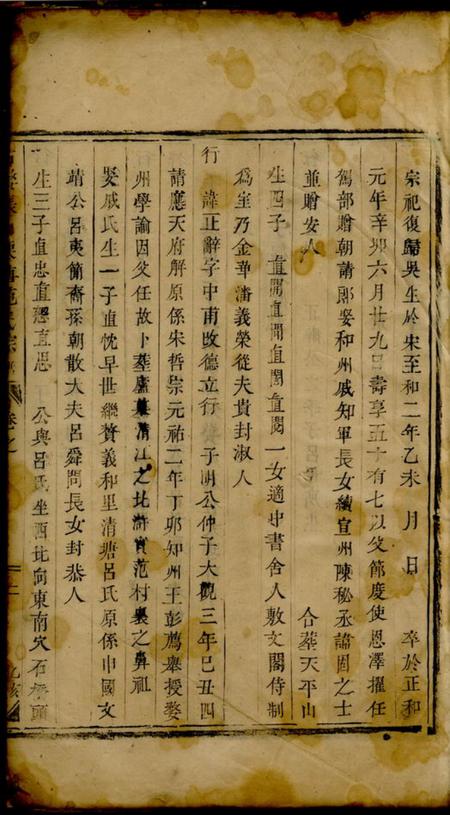 宗祀復歸吳生於宋至和二年乙未 月 日 卒於正和
元年辛卯六月廿九日壽享五十有七以父節度使恩澤擢任
駕部贈朝請郎娶和州戚知軍長女續宣州陳秘丞諭因之士
並贈安人 合葬天平山
生四子 直 直 直 直 一女適中書舍人敷文閣侍制
為室乃金華潘義榮從夫貴封淑人
行 諱正辭字中甫改德立行 子明公仲子大觀三年己丑四
請應天府解原係宋哲宗元祐二年丁卯知州王彭薦舉授婺
州學諭因父任故卜葬廬 清江之北滸實范村 之鼻祖
娶戚氏生一子直忱早世繼贅義和里清塘呂氏原係申國文
靖公呂夷簡裔孫朝散大夫呂舜問長女封恭人
生三子直忠直 直思 公與呂氏坐西北向東南穴石 頭